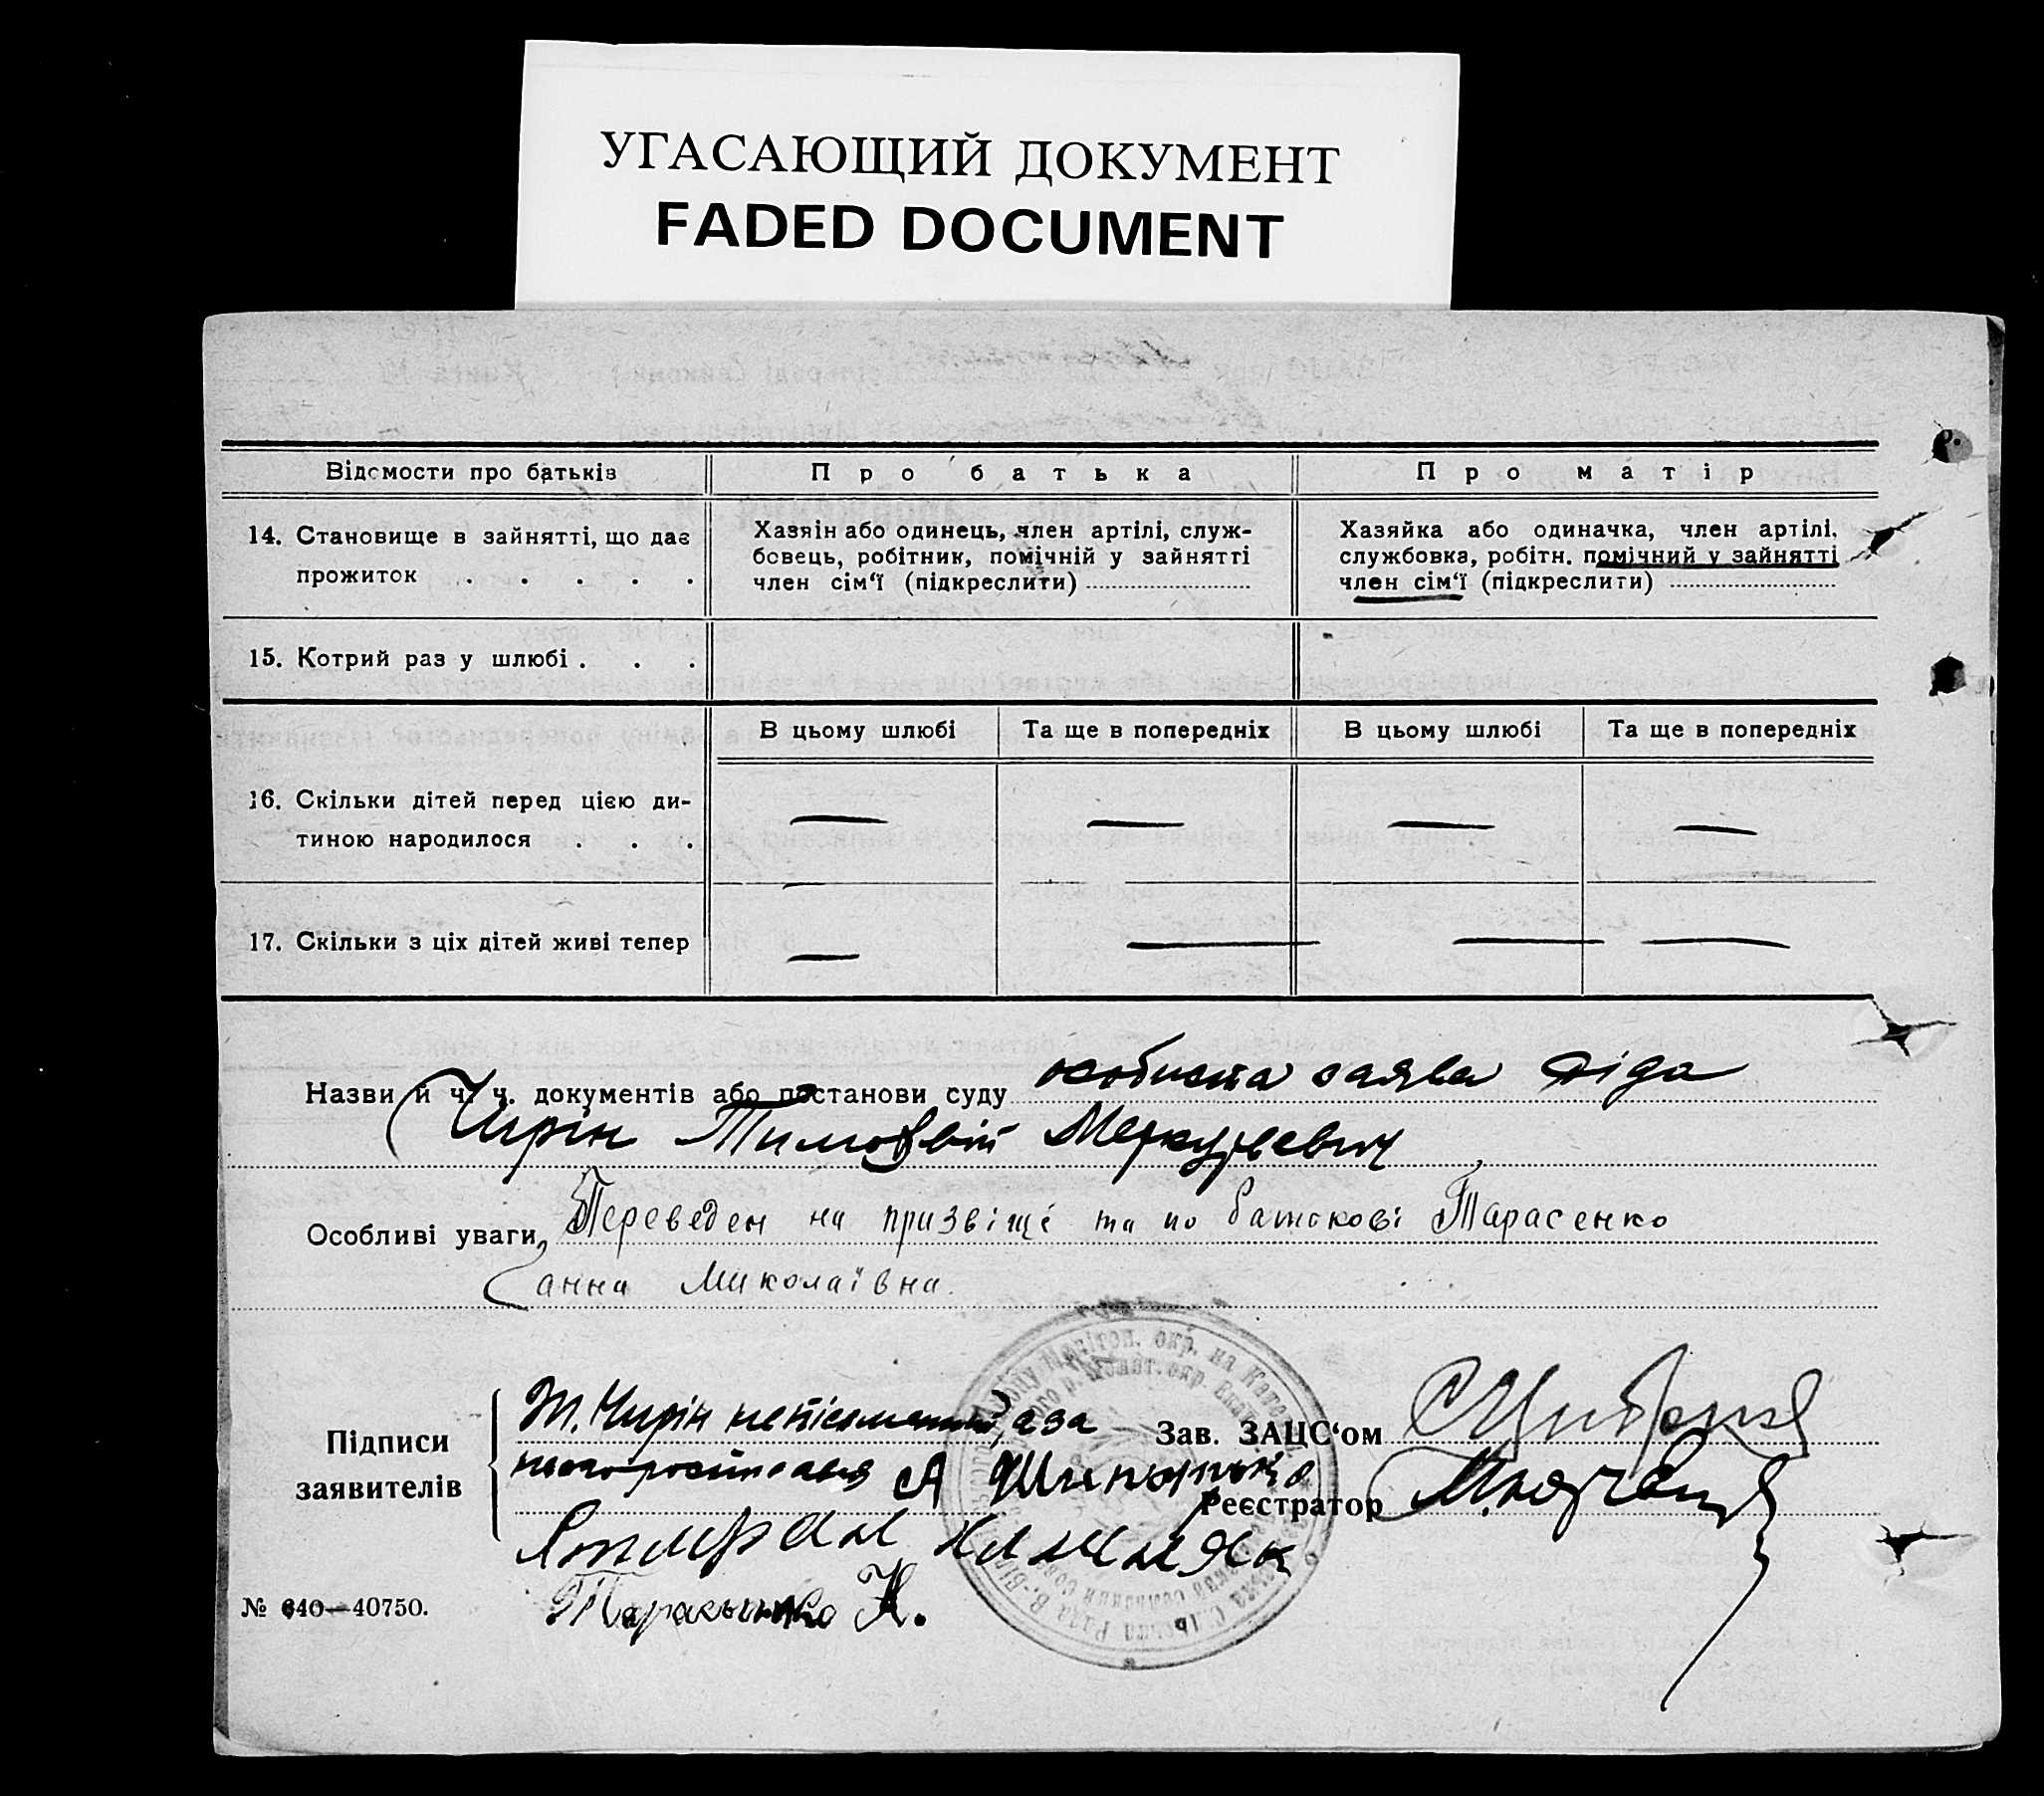 УГАСАЮЩИЙ ДОКУМЕНТ
FADED DOCUMENT
Відомости про батьків
Про батька
Про матір
14. Становище в зайнятті, що дає
прожиток . . . . .
Хазяїн або одинець, член артілі, служ-
бовець, робітник, помічній у зайнятті
член сім‘ї (підкреслити)
Хазяйка або одиначка, член артілі,
службовка, робітн. помічний у зайнятті
член сім‘ї (підкреслити)
15. Котрий раз у шлюбі . . .
В цьому шлюбі
Та ще в попередніх
В цьому шлюбі
Та ще в попередніх
16. Скільки дітей перед цією ди-
тиною народилося . . .
— — — —
17. Скільки з ціх дітей живі тепер
— — — —
Назви й ч. ч. документів або постанови суду особиста заява діда
Чирін Тимофвій Меркулевич
Особливі уваги Переведен на призвіще та по батькові Тарасенко
Ганна Миколаївна.
Підписи
заявителів
Т. Чирін непісьменний, а за
А
Тарасенко Н.
Зав. ЗАЦС‘ом
Реєстратор
№ 640—40750.